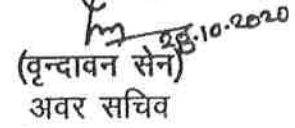 28.10.2020
(वृन्दावन सेन)
अवर सचिव